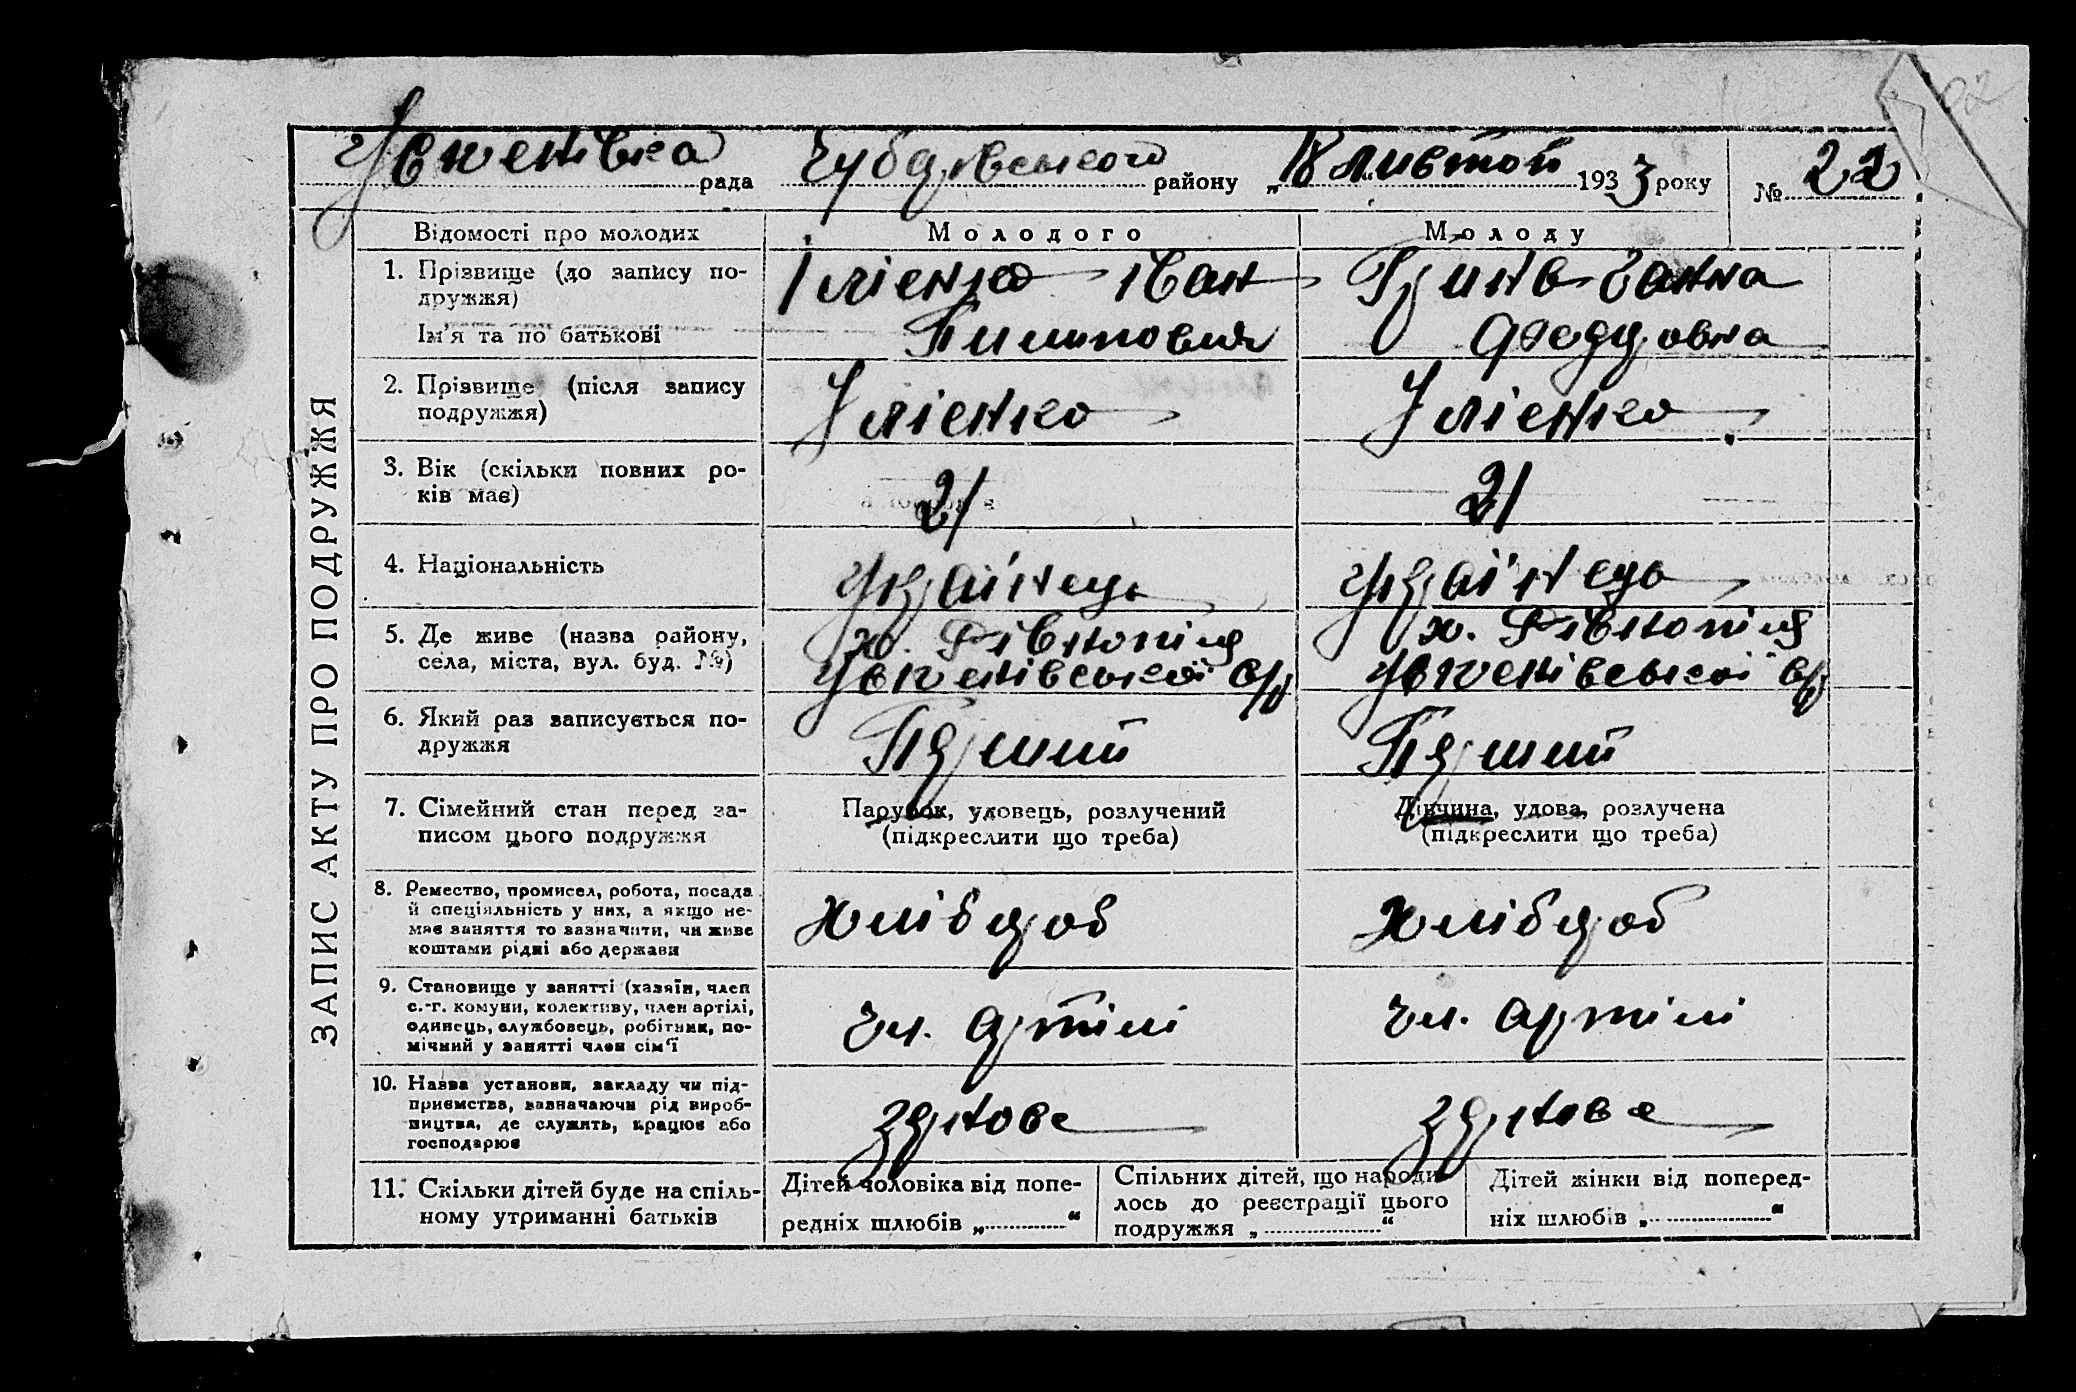 Успенівка рада Чубарівського району „18 листоп 1933 року № 22
ЗАПИС АКТУ ПРО ПОДРУЖЖЯ
Відомості про молодих
Молодого
Молоду
1. Прізвище (до запису по-
дружжя)
Ім'я та по батькові
Іллієнко Іван
Пилипович
Гринь Ганна
Федоровна
2. Прізвище (після запису
подружжя)
Іллієнко
Іллієнко
3. Вік (скільки повних ро-
ків має)
21
21
4. Національність
Українець
Українець
5. Де живе (назва району,
села, міста, вул. буд. №)
х. Рівнопілля
Успенівської с/р
х. Рівнопілля
Успенівської с/р
6. Який раз записується по-
дружжя
Перший
Перший
7. Сімейний стан перед за-
писом цього подружжя
Парубок, удовець, розлучений
(підкреслити що треба)
Дівчина, удова, розлучена
(підкреслити що треба)
8. Ремество, промисел, робота, посада
й спеціяльність у них, а якщо не-
має заняття то зазначити, чи живе
коштами рідні або держави
Хлібороб
Хлібороб
9. Становище у занятті (хазяїн, член
с.-г. комуни, колективу, член артілі,
одинець, службовець, робітник, по-
мічний у занятті член сім'ї
Чл. артілі
Чл. артілі
10. Назва установи, закладу чи під-
приємства, зазначаючи рід вироб-
ництва, де служить, працює або
господарює
зернове
зернове
11. Скільки дітей буде на спіль-
ному утриманні батьків
Дітей чоловіка від попе-
редніх шлюбів „ “
Спільних дітей, що народи-
лось до реєстрації цього
подружжя „ “
Дітей жінки від поперед-
ніх шлюбів „ “